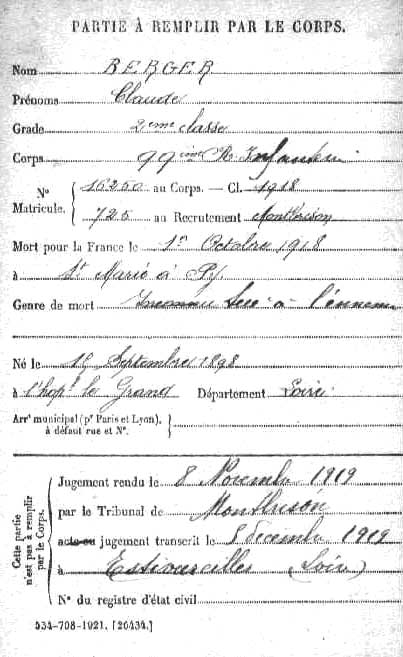 PARTIE À REMPLIR PAR LE CORPS.
Nom BERGER
Prénoms Claude
Grade 2ème classe
Corps 99ième R. Infanterie
N° Matricule. 16250 au Corps. — Cl. 1918
725 au Recrutement Montbrison
Mort pour la France le 1er Octobre 1918
à St Marie à Py
Genre de mort Inconnu tué à l'ennemi
Né le Septembre 1898
à l'hop.l le Grand Département Loire
Arr^t municipal (p^r Paris et Lyon),
à défaut rue et N°.
Cette partie n'est pas à remplir par le Corps.
Jugement rendu le 8 Novembre 1919
par le Tribunal de Montbrison
acte ou jugement transcrit le décembre 1919
à Estivareilles (Loire)
N° du registre d'état civil
534-708-1921. [26434.]